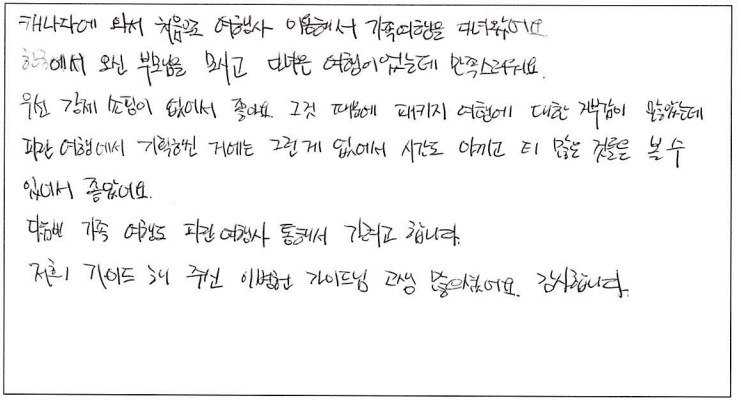 캐나다에 와서 처음으로 여행사 이용해서 가족여행을 다녀왔어요
한국에서 오신 부모님을 모시고 다녀온 여행이었는데 만족스러워요.
우선 강제 쇼핑이 없어서 좋아요. 그것 때문에 패키지 여행에 대한 거부감이 많았는데
파란 여행에서 기획하신 거에는 그런 게 없어서 시간도 아끼고 더 많은 것들을 볼 수
있어서 좋았어요.
다음번 가족 여행도 파란 여행사 통해서 가려고 합니다.
저희 가이드 해 주신 이병헌 가이드님 고생 많으셨어요. 감사합니다.